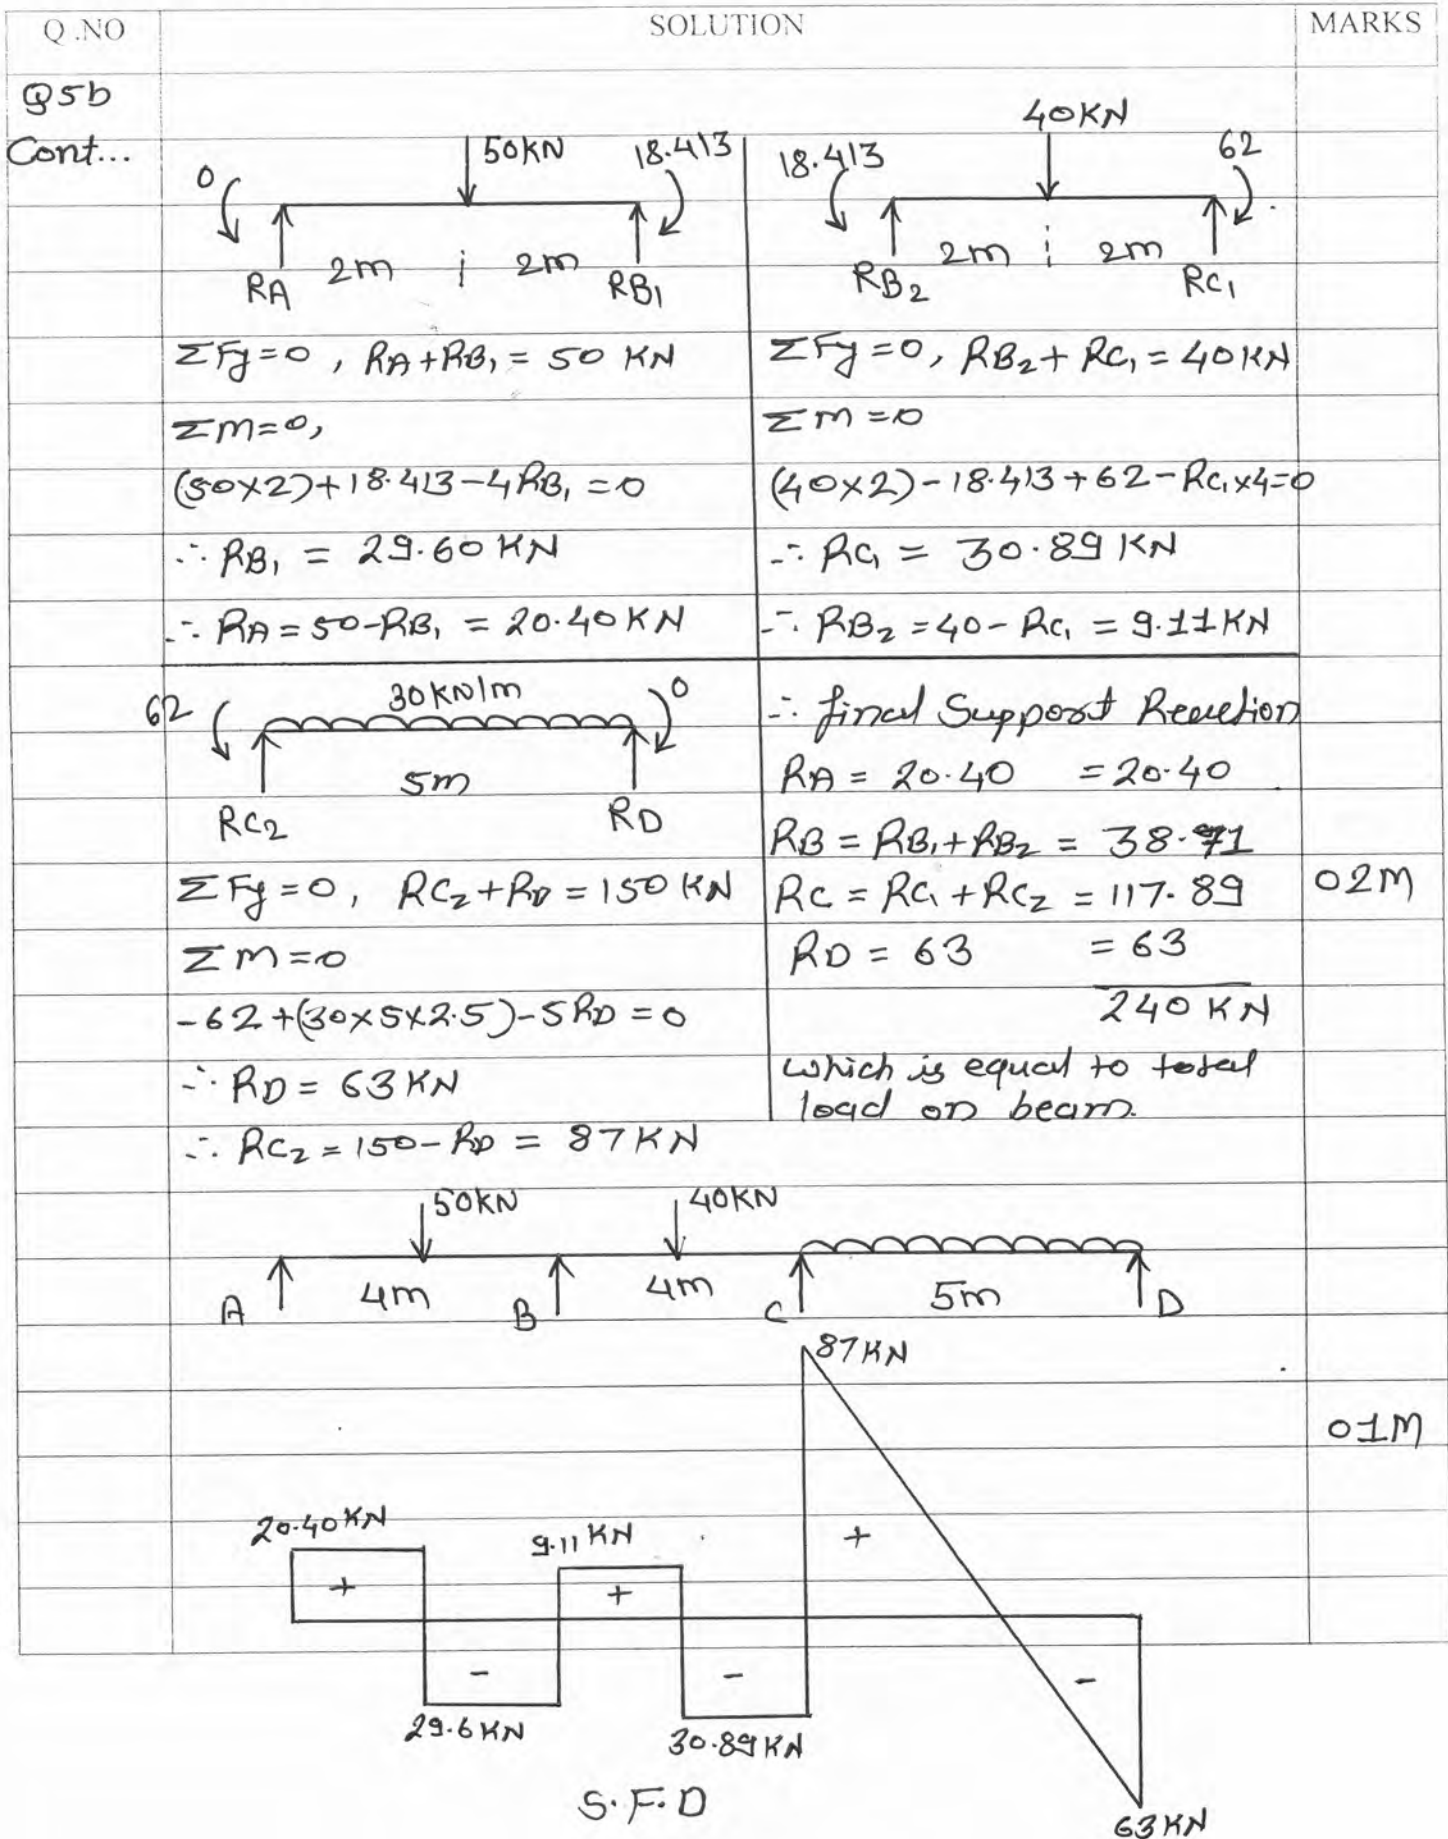 Q.NO SOLUTION MARKS
Q5b
Cont...
50KN 18.413
0
RA 2m 2m RB1
ΣFy=0, RA+RB1 = 50 KN
ΣM=0,
(50×2)+18.413-4RB1=0
∴ RB1 = 29.60 KN
∴ RA=50-RB1 = 20.40KN
40KN
18.413 62
RB2 2m 2m RC1
ΣFy=0, RB2+RC1=40KN
ΣM=0
(40×2)-18.413+62-RC1×4=0
∴ RC1 = 30.89 KN
∴ RB2=40-RC1 = 9.11KN
62 30KN/m 0
5m
RC2 RD
ΣFy=0, RC2+RD=150KN
ΣM=0
-62+(30×5×2.5)-5RD=0
∴ RD= 63KN
∴ RC2=150-RD = 87KN
∴ final Support Reaction
RA = 20.40 =20.40
RB = RB1+RB2 = 38.71
RC = RC1+RC2 = 117.89 02M
RD = 63 = 63
240 KN
which is equal to total
load on beam.
50KN 40KN
A 4m B 4m C 5m D
87KN
01M
20.40KN 9.11 KN +
+ +
- - -
29.6KN 30.89KN
S.F.D
63KN